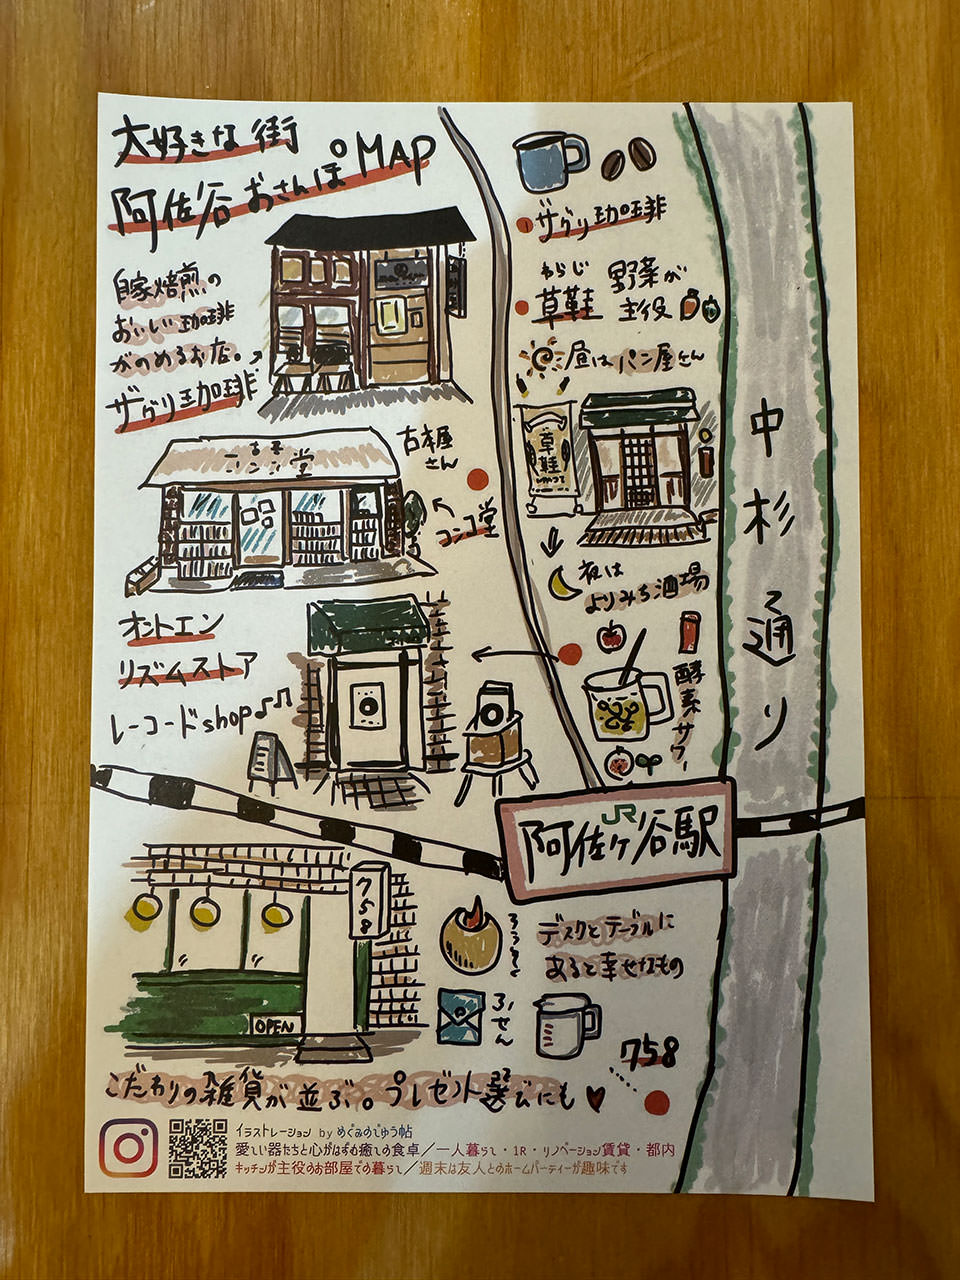 大好きな街
阿佐谷おさんぽMAP
自家焙煎の
おいしい珈琲
がのめるお店。
ザグリ珈琲
ザグリ珈琲
わらじ
草鞋
野菜が
主役
昼はパン屋さん
草鞋
夜は
よりみち酒場
酵素サワー
コンコ堂
古本屋
さん
コンコ堂
オントエン
リズムストア
レコードshop
JR
阿佐ヶ谷駅
中杉通り
758
OPEN
ろうそく
ふせん
デスクとテーブルに
あると幸せなもの
758
こだわりの雑貨が並ぶ。プレゼント選びにも
イラストレーション by めぐみのでゅう帖
愛しい器たちと心がはずむ癒しの食卓／一人暮らし・1R・リノベーション賃貸・都内
キッチンが主役のお部屋での暮らし／週末は友人とのホームパーティーが趣味です